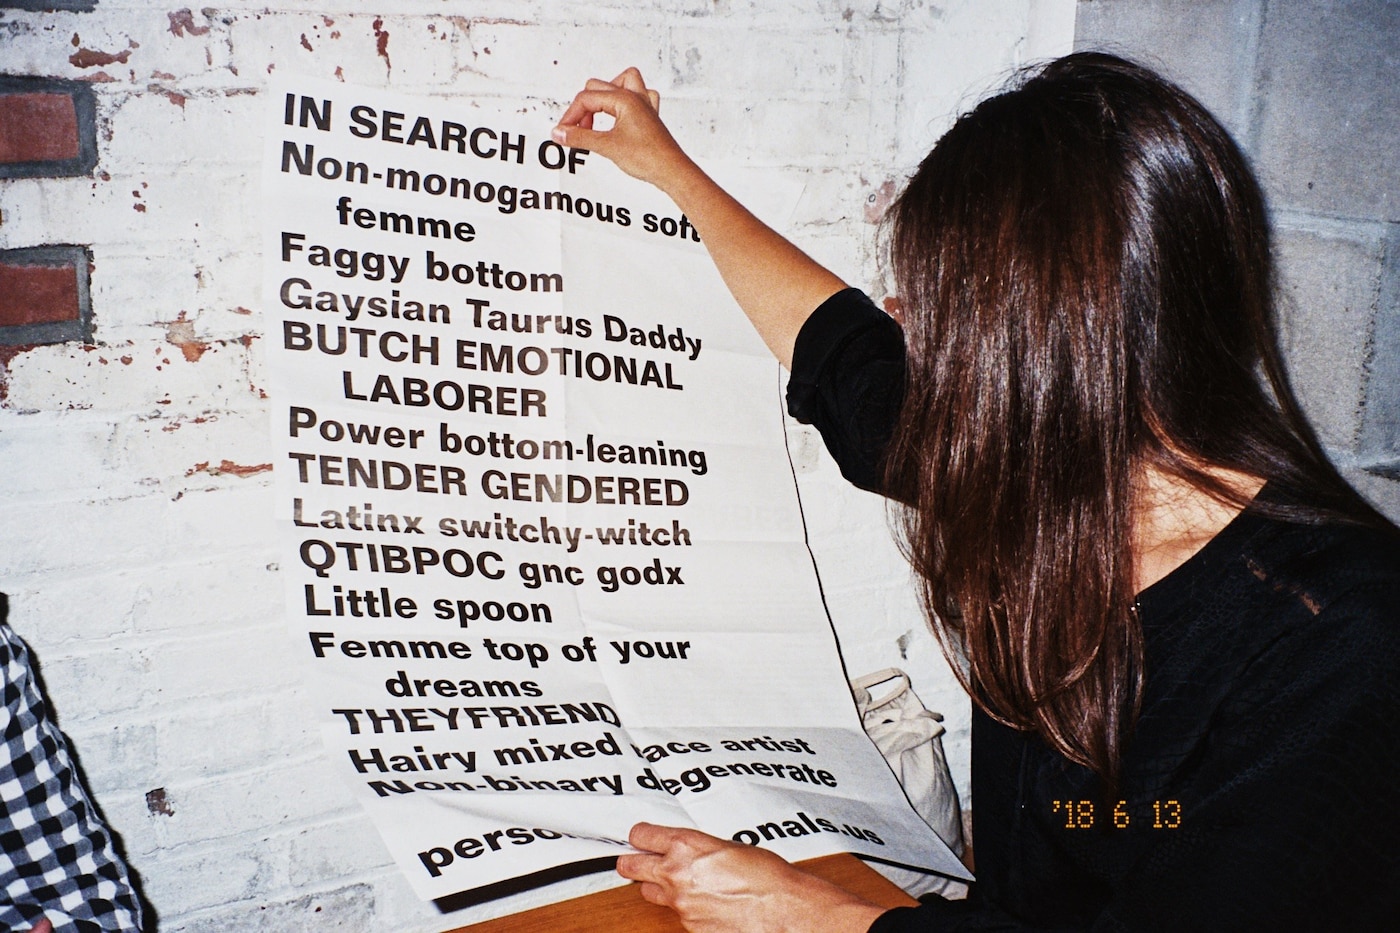 IN SEARCH OF
Non-monogamous soft
femme
Faggy bottom
Gaysian Taurus Daddy
BUTCH EMOTIONAL
LABORER
Power bottom-leaning
TENDER GENDERED
Latinx switchy-witch
QTIBPOC gnc godx
Little spoon
Femme top of your
dreams
THEYFRIEND
Hairy mixed race artist
Non-binary degenerate
perso onals.us
'18 6 13